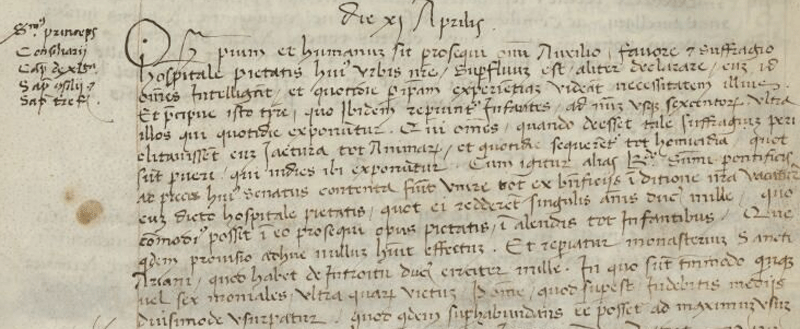 Die xi Aprilis.
Ser.mus princeps
Consiliarij
Cap. de xl.ta
Sap. 9silij
Sap. tre f.
Q pium et humanum sit prosequi omni Auxilio, favore & suffragio
hospitale pietatis huius Urbis nrẽ, supfluum est aliter declarare, cum id
omnes Intelligant, et quottidie p ipam experientiam videãt necessitatem illius.
Et pcipue isto tpre, quo Ibidem repiuntur Infantes, ad num usque sexcentorum, Ultra
illos qui quotidie exponuntur. Qui omes, quando deesset tale suffragium peri
clitarissent cum Jactura tot Animarum, et quotidie sequeretur tot homicidia, quot
sũt pueri, qui indies ibi exponuntur. Cum igitur alias Summi pontifices
ad preces huius Senatus contenta fuit Unire tot ex bnficijs ĩ ditione nrã vacãtibus
cum dicto hospitale pietatis, quot ei redderet singulis anis duc. mille, quo
comodius posset ĩ eo prosequi opus pietatis, ĩ alendis tot Infantibus. Que
qdem provisio adhuc nullum huit effectum. Et repiatur monasterium Sancti
Ariani, quod habet de Introitu duc. circiter mille. In quo sũt tmmodo quinque
vel sex moniales, Ultra quarum victum, quod supest Indebitis medijs
divisimode usurpatur. quod qdem suphabundans posset ad maximum usum